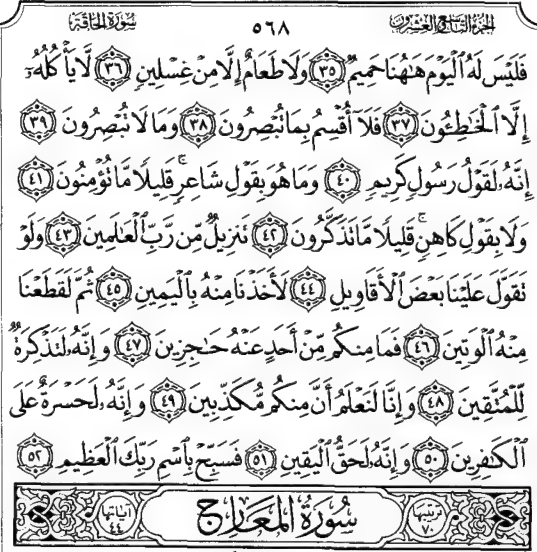 الجزء التاسع والعشرون ٥٦٨ سورة الحاقة
فَلَيْسَ لَهُ ٱلْيَوْمَ هَٰهُنَا حَمِيمٌ ٣٥ وَلَا طَعَامٌ إِلَّا مِنْ غِسْلِينٍ ٣٦ لَّا يَأْكُلُهُۥٓ
إِلَّا ٱلْخَٰطِـُٔونَ ٣٧ فَلَآ أُقْسِمُ بِمَا تُبْصِرُونَ ٣٨ وَمَا لَا تُبْصِرُونَ ٣٩
إِنَّهُۥ لَقَوْلُ رَسُولٍ كَرِيمٍ ٤٠ وَمَا هُوَ بِقَوْلِ شَاعِرٍ ۚ قَلِيلًا مَّا تُؤْمِنُونَ ٤١
وَلَا بِقَوْلِ كَاهِنٍ ۚ قَلِيلًا مَّا تَذَكَّرُونَ ٤٢ تَنزِيلٌ مِّن رَّبِّ ٱلْعَٰلَمِينَ ٤٣ وَلَوْ
تَقَوَّلَ عَلَيْنَا بَعْضَ ٱلْأَقَاوِيلِ ٤٤ لَأَخَذْنَا مِنْهُ بِٱلْيَمِينِ ٤٥ ثُمَّ لَقَطَعْنَا
مِنْهُ ٱلْوَتِينَ ٤٦ فَمَا مِنكُم مِّنْ أَحَدٍ عَنْهُ حَٰجِزِينَ ٤٧ وَإِنَّهُۥ لَتَذْكِرَةٌ
لِّلْمُتَّقِينَ ٤٨ وَإِنَّا لَنَعْلَمُ أَنَّ مِنكُم مُّكَذِّبِينَ ٤٩ وَإِنَّهُۥ لَحَسْرَةٌ عَلَى
ٱلْكَٰفِرِينَ ٥٠ وَإِنَّهُۥ لَحَقُّ ٱلْيَقِينِ ٥١ فَسَبِّحْ بِٱسْمِ رَبِّكَ ٱلْعَظِيمِ ٥٢
ترتيبها ٧٠ سُورَةُ المَعَارِجِ آياتها ٤٤